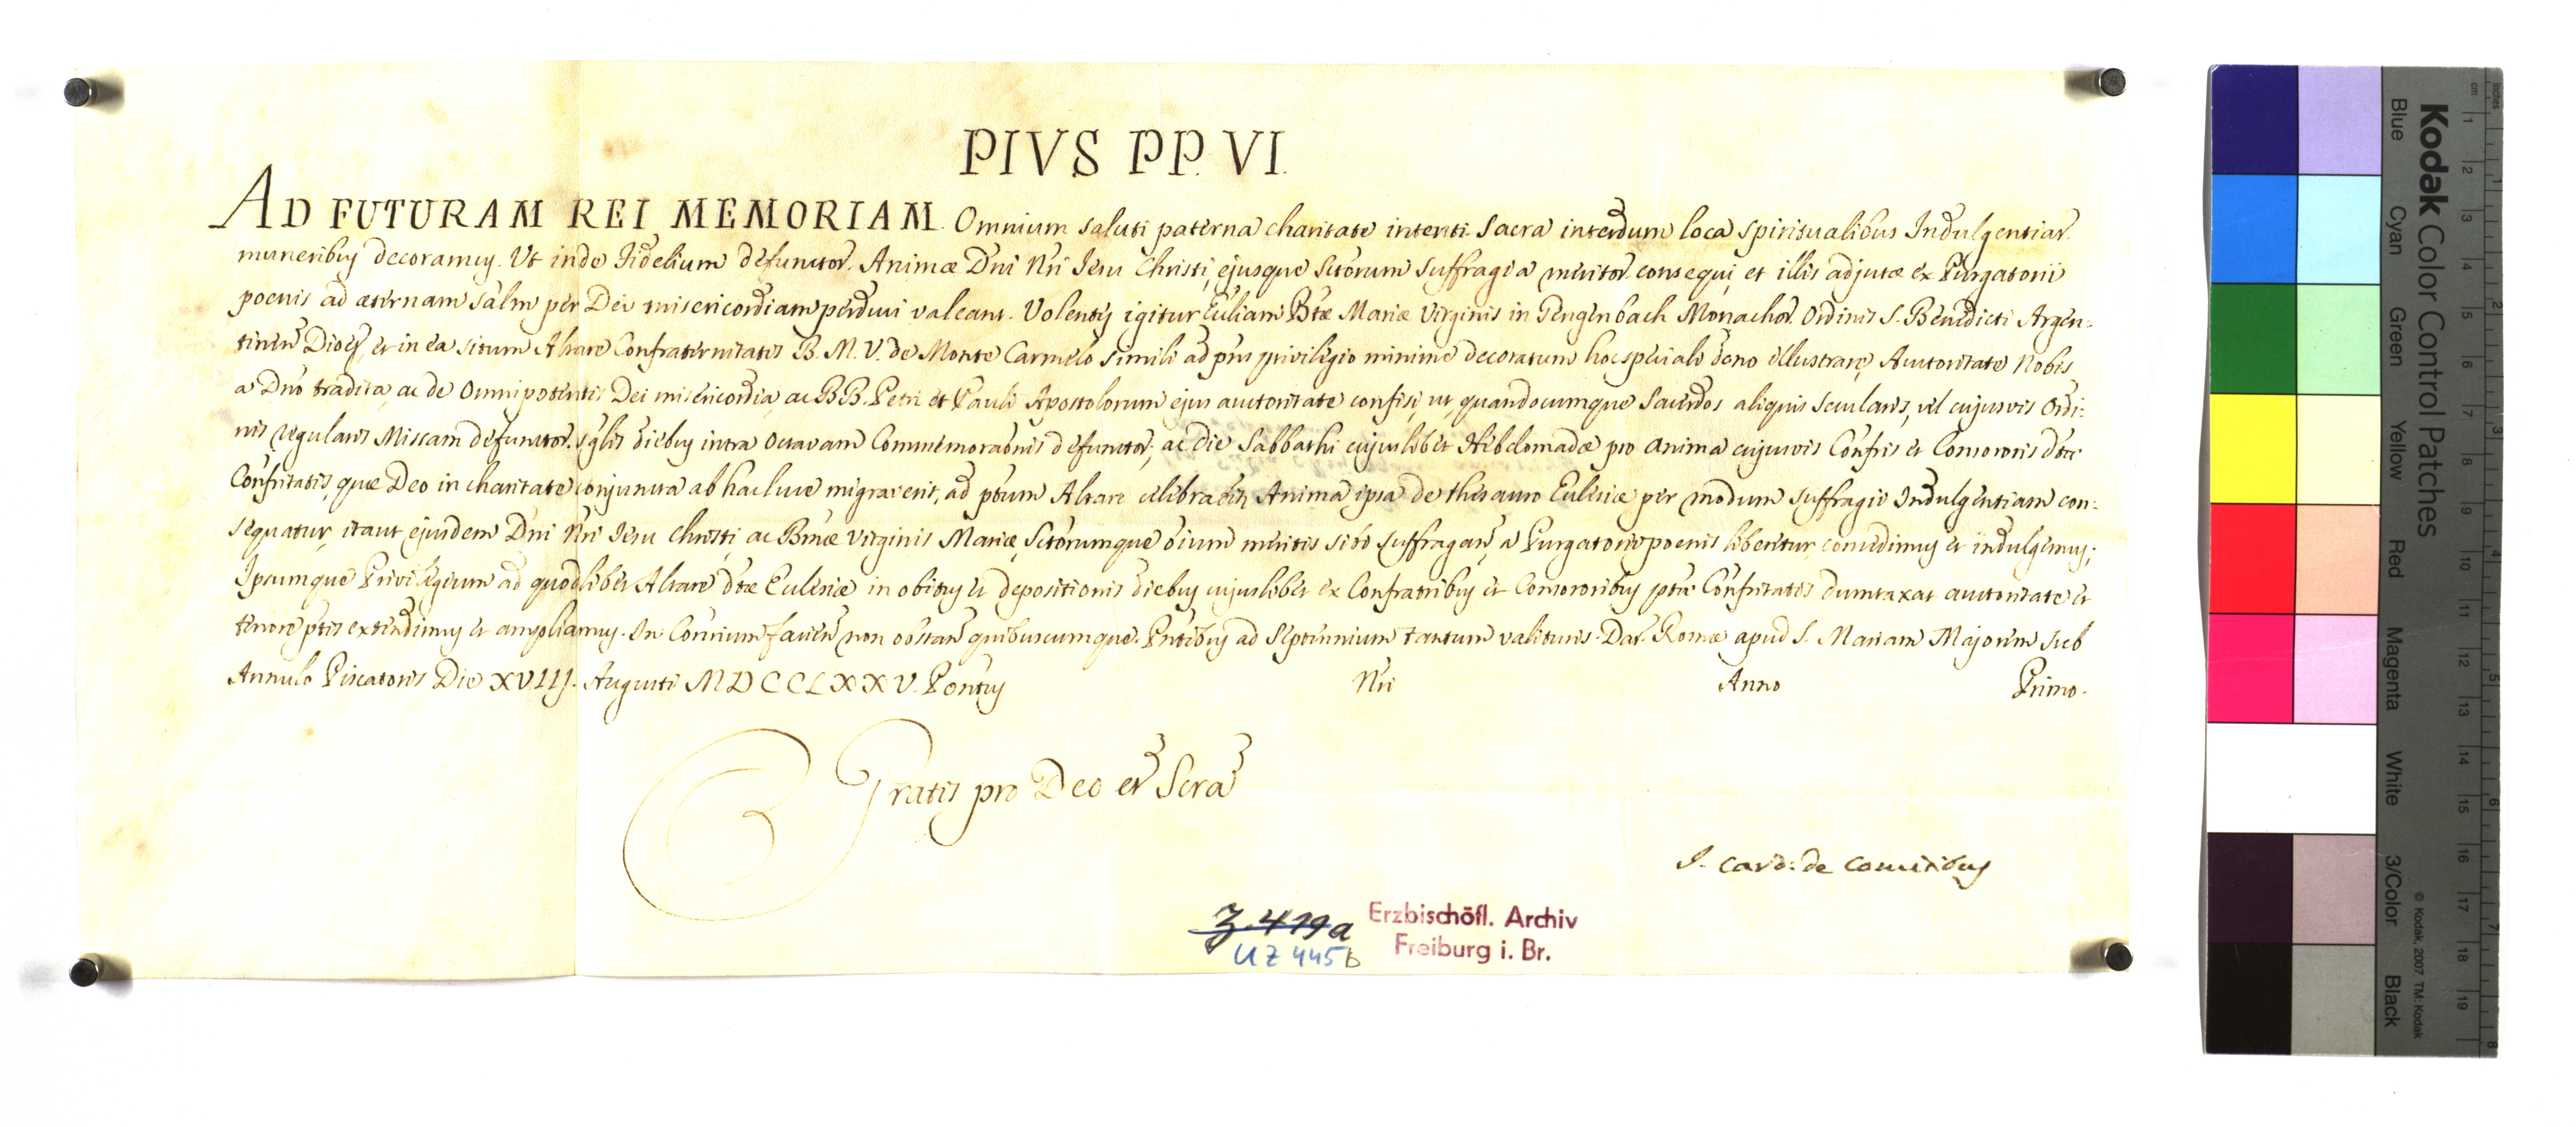 PIVS PP. VI.
AD FUTURAM REI MEMORIAM. Omnium saluti paterna charitate intenti Sacra interdum loca spiritualibus Indulgentiar.
muneribus decoramus. Ut inde Fidelium defunctor. Animæ Dni Nri Jesu Christi, ejusque Sctorum suffragia meritor. consequi, et illis adjutæ ex Purgatorii
poenis ad æternam salm per Dei misericordiam perduci valeant. Volentes igitur Ecliam Btæ Mariæ Virginis in Gengenbach Monachor. Ordinis S. Benedicti Argen-
tinen Dioces, et in ea situm Altare Confraternitatis B. M. V. de Monte Carmelo simili ad pns privilegio minime decoratum hoc speciali dono illustrare, Auctoritate Nobis
a Dno tradita, ac de Omnipotentis Dei misericordia, ac BB. Petri et Pauli Apostolorum ejus auctoritate confisi, ut quandocumque Sacerdos aliquis secularis, vel cujusvis Ordi-
nis regularis Missam defunctor. sglis diebus intra Octavam Commemoraonis defunctor., ac die Sabbathi cujuslibet Hebdomadæ pro Anima cujusvis Confris et Consororis dtæ
Confritatis, quæ Deo in charitate conjuncta ab hac luce migraverit, ad pttum Altare celebrabit, Anima ipsa de thesauro Ecclesiæ per modum suffragii Indulgentiam con-
sequatur, itaut ejusdem Dni Nri Jesu Christi, ac Bmæ Virginis Mariæ, Sctorumque oium meritis sibi suffragan, a Purgatorio poenis liberetur, concedimus et indulgemus;
Ipsumque Privilegium ad quodlibet Altare dtæ Ecclesiæ in obitus et depositionis diebus cujuslibet ex Confratribus et Consororibus pttæ Confritatis dumtaxat auctoritate et
tenore pttis extendimus et ampliamus. In Conrium facien non obstan quibuscumque. Pntibus ad Septennium tantum valituris. Dat. Romæ apud S. Mariam Majorem sub
Annulo Piscatoris Die XVIII. Augusti MDCCLXXV. Pontus Nri Anno Primo.
Gratis pro Deo et Scra
I. Card: de Comitibus
Z. 419a
UZ 445b
Erzbischöfl. Archiv
Freiburg i. Br.
Kodak Color Control Patches
Blue Cyan Green Yellow Red Magenta White 3/Color Black
© Kodak, 2007 TM: Kodak
cm 1 2 3 4 5 6 7 8 9 10 11 12 13 14 15 16 17 18 19
inches 1 2 3 4 5 6 7 8